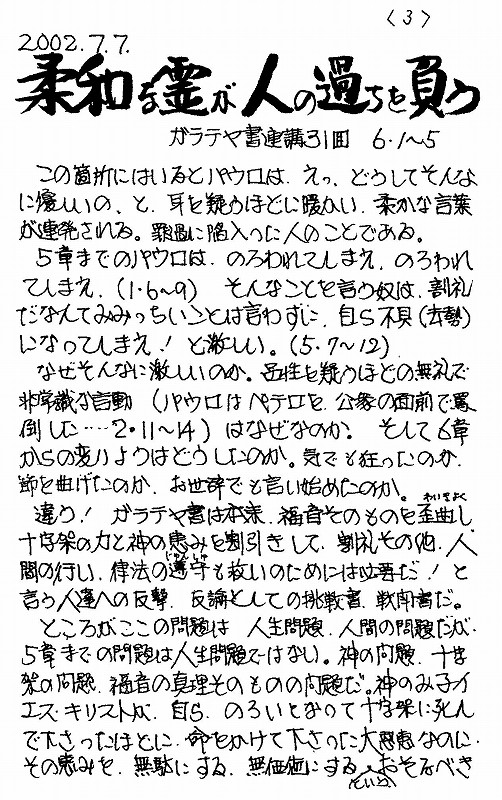 〈3〉
2002.7.7.
柔和な霊が人の過ちを負う
ガラテヤ書連講31回 6・1〜5
この箇所にはいるとパウロは、えっ、どうしてそんな
に優しいの、と、耳を疑うほどに暖かい、柔かな言葉
が連発される。罪過に陥入った人のことである。
5章までのパウロは、のろわれてしまえ、のろわれ
てしまえ、(1・6〜9) そんなことを言う奴は、割礼
だなんてみみっちいことは言わずに、自ら不具(去勢)
になってしまえ！と激しい。(5・7〜12)
なぜそんなに激しいのか。品性を疑うほどの無礼で
非常識な言動 (パウロはペテロを、公衆の面前で罵
倒した……2・11〜14) はなぜなのか。そして6章
からの変りようはどうしたのか。気でも狂ったのか、
節を曲げたのか、お世辞でも言い始めたのか。
違う！ガラテヤ書は本来、福音そのものを歪曲し わいきょく
十字架の力と神の恵みを割引きして、割礼その他、人
間の行い、律法の遵守も救いのためには必要だ！と じゅんしゅ
言う人達への反撃、反論としての挑戦書、戦闘書だ。
ところがここの問題は 人生問題、人間の問題だが
5章までの問題は人生問題ではない。神の問題、十字
架の問題、福音の真理そのものの問題だ。神のみ子イ
エス・キリストが、自ら、のろいとなって十字架に死ん
で下さったほどに、命をかけて下さった大恩恵なのに、
その恵みを、無駄にする、無価値にするというおそるべき